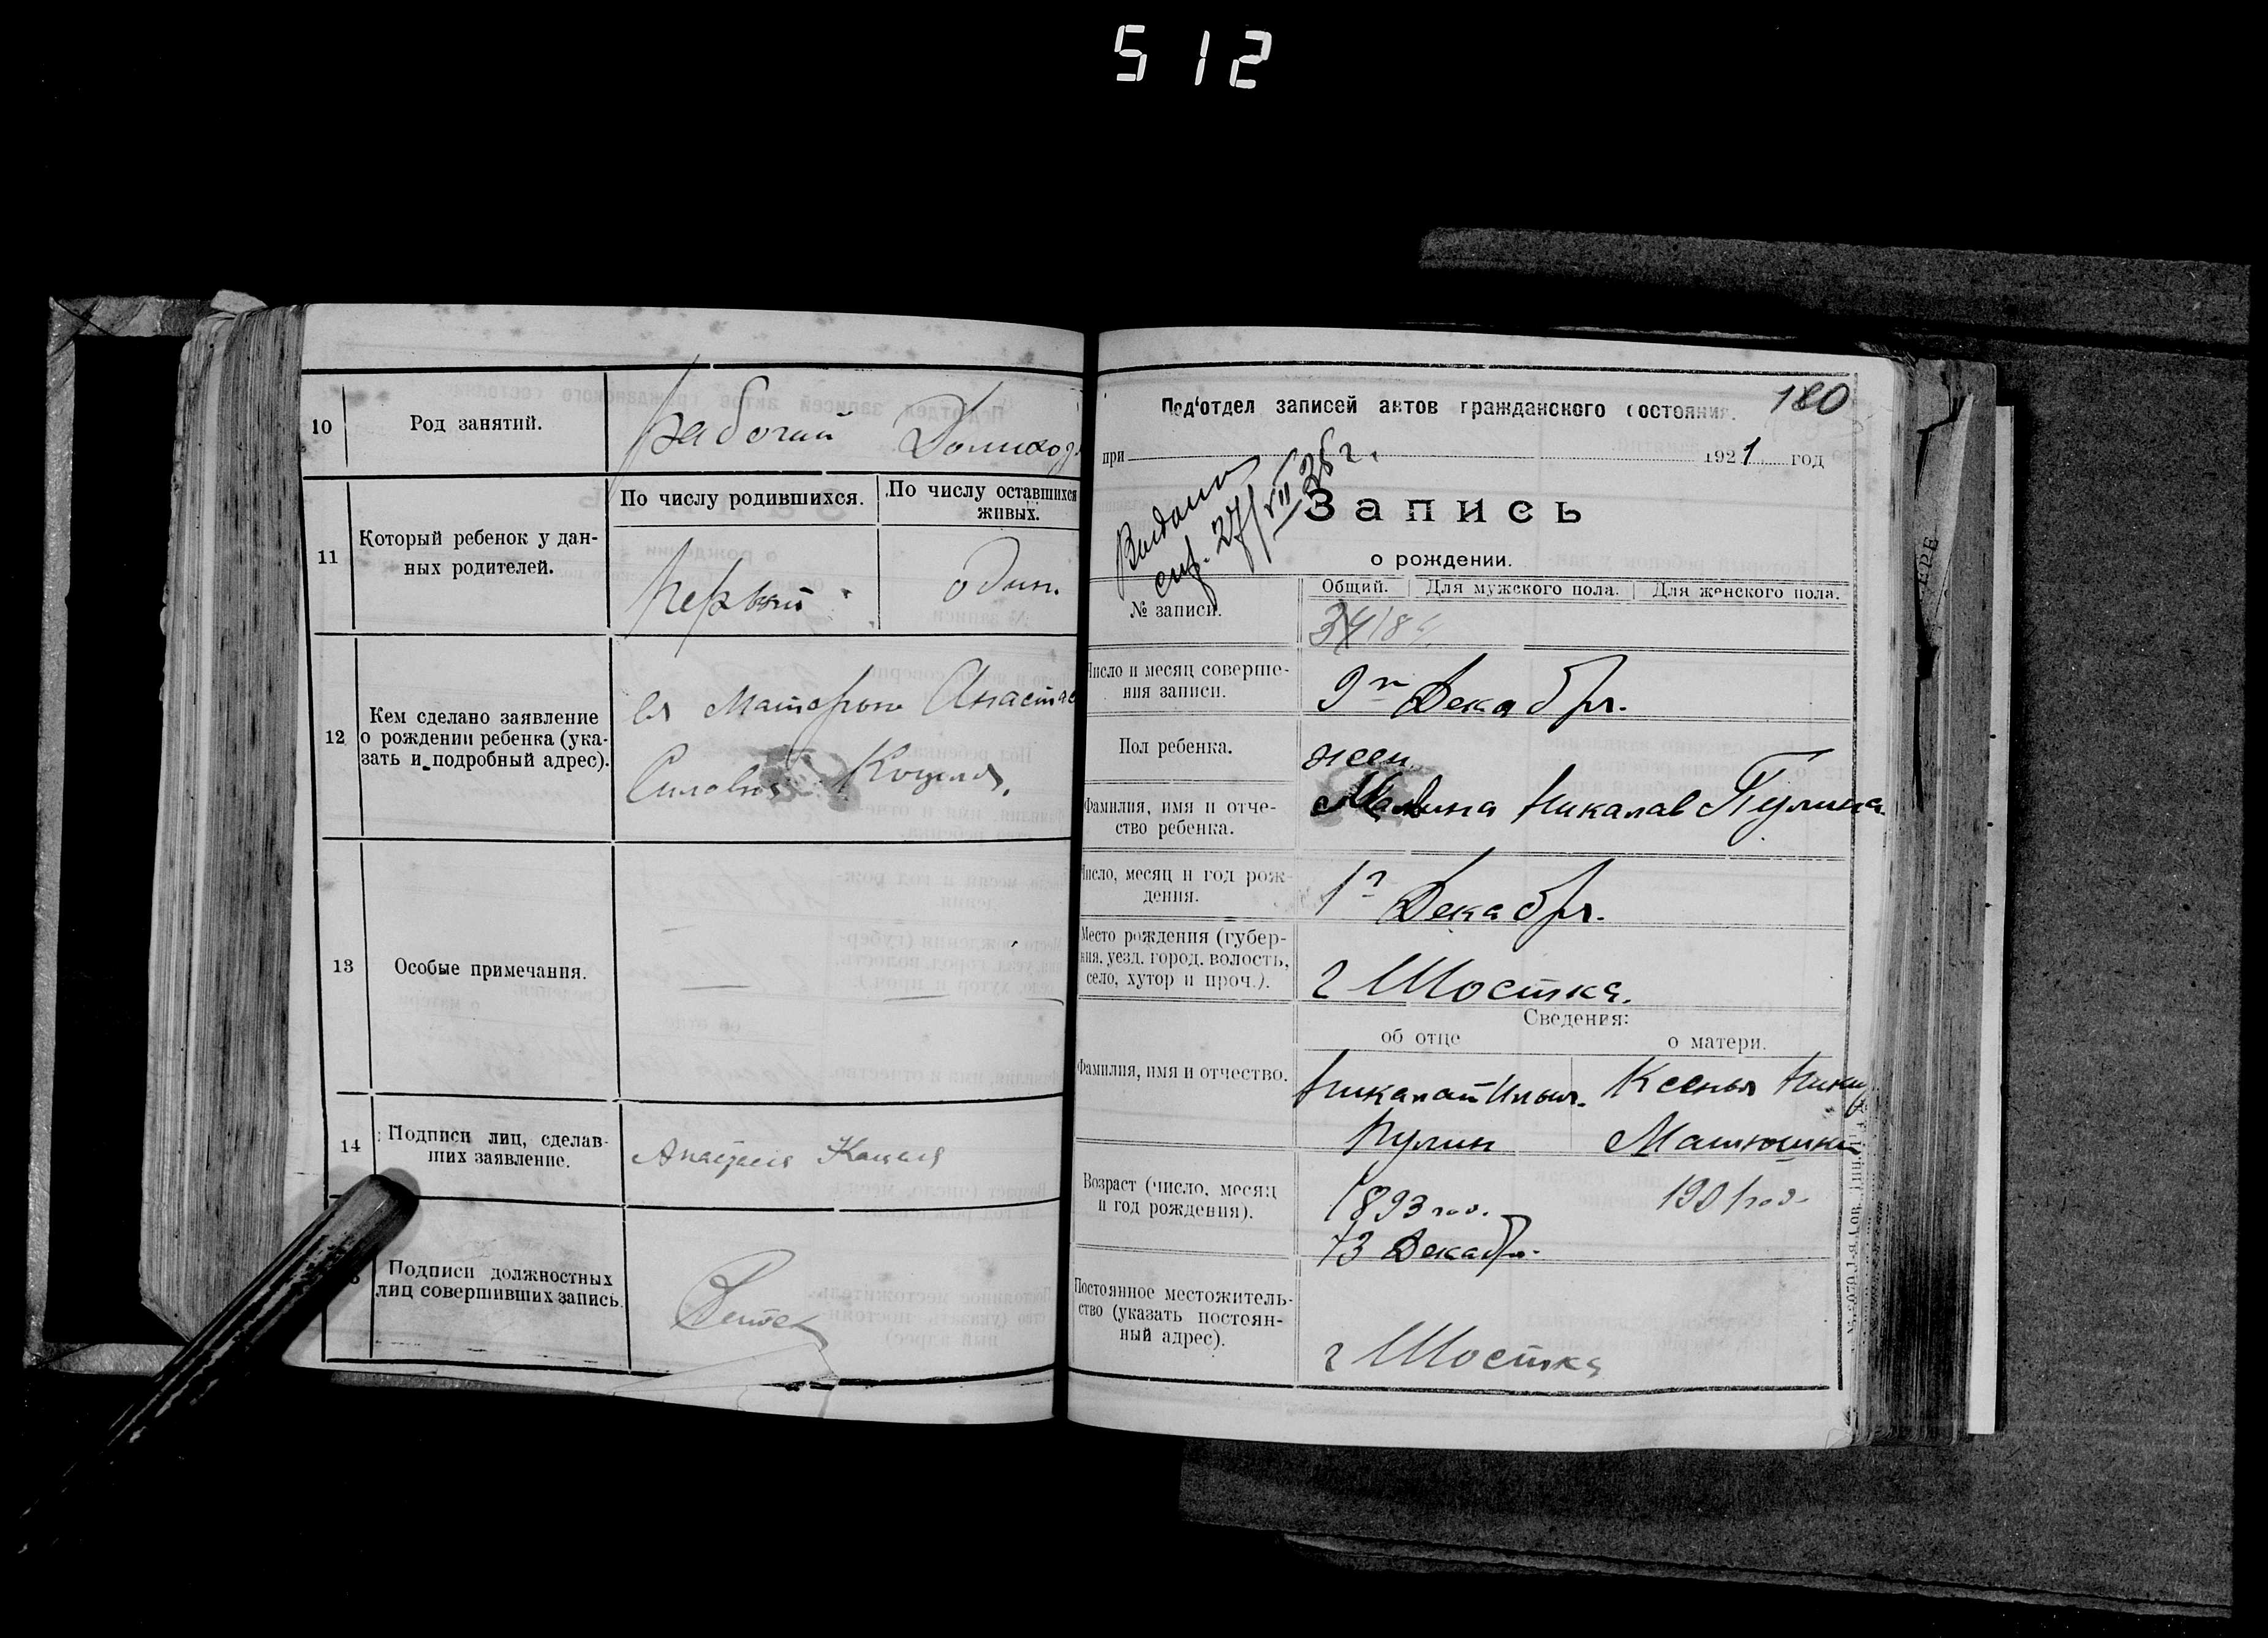 512
10
Род занятий.
рабочий
11
Который ребенок у дан-
ных родителей.
По числу родившихся.
По числу оставшихся
живых.
первый
один.
12
Кем сделано заявление
о рождении ребенка (ука-
зать и подробный адрес).
13
Особые примечания.
14
Подписи лиц, сделав-
ших заявление.
Подписи должностных
лиц совершивших запись.
180
Под‘отдел записей актов гражданского состояния.
при
1921 год
Выдана
27/VII 26 г.
Запись
о рождении.
№ записи.
Общий.
Для мужского пола.
Для женского пола.
Число и месяц соверше-
ния записи.
9го Декабря.
Пол ребенка.
жен.
Фамилия, имя и отче-
ство ребенка.
Никалав Пулина
Число, месяц и год рож-
дения.
1го Декабря.
Место рождения (губер-
ния, уезд, город, волость,
село, хутор и проч.).
г Шостка.
Сведения:
об отце
о матери.
Фамилия, имя и отчество.
Никалай Ильич.
Ксенья
Пулин
Возраст (число, месяц
и год рождения).
1893 год.
1901 год
13 Декабря.
Постоянное местожитель-
ство (указать постоян-
ный адрес).
г Шостка